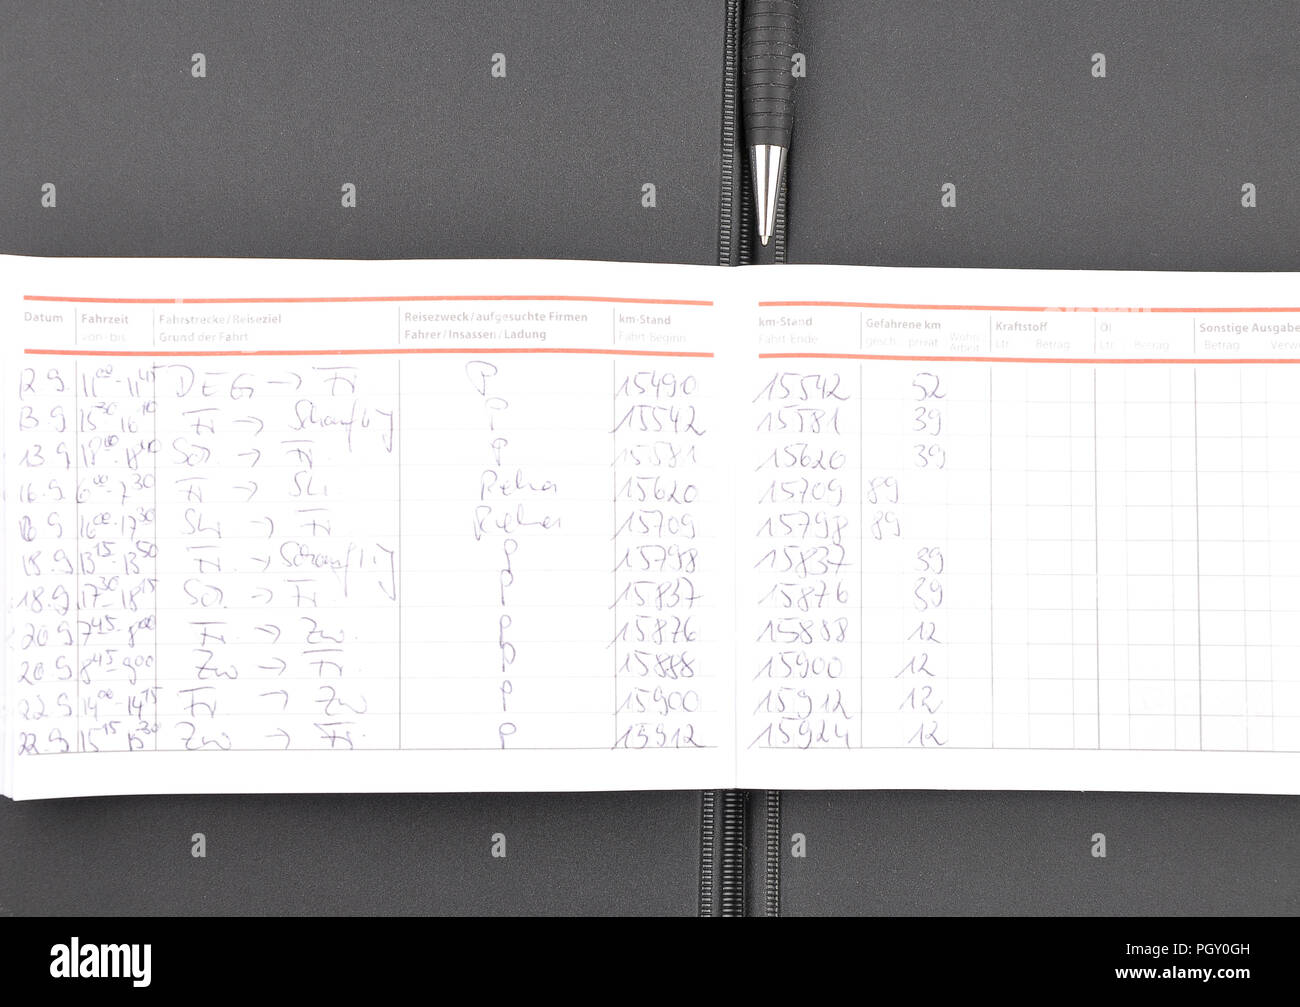 Datum Fahrzeit Fahrstrecke/Reiseziel Reisezweck/aufgesuchte Firmen km-Stand km-Stand Gefahrene km Kraftstoff Öl Sonstige Ausgabe
von - bis Grund der Fahrt Fahrer/Insassen/Ladung Fahrt-Beginn Fahrt-Ende gesch. privat Wohn. Arbeit Ltr. Betrag Ltr. Betrag Betrag Verw
12.9 11 00 - 11 45 DEG → Fr P 15490 15542 52
13.9 15 30 16 10 Fr → P 15542 15581 39
13.9 18 00 - 18 40 → Fr. P 15581 15620 39
16.9 6 00 - 7 30 Fr → Reha 15620 15709 89
16.9 16 00 - 17 30 → Fr Reha 15709 15798 89
18.9 13 15 - 13 50 Fr. → P 15798 15837 39
18.9 17 30 - 18 15 → Fr P 15837 15876 39
20.9 7 45 - 8 00 Fr. → Zw. P 15876 15888 12
20.9 8 45 - 9 00 Zw → Fr. P 15888 15900 12
22.9 14 00 - 14 15 Fr → Zw P 15900 15912 12
22.9 15 15 - 15 30 Zw → Fr. P 15912 15924 12
alamy
Image ID: PGY0GH
www.alamy.com